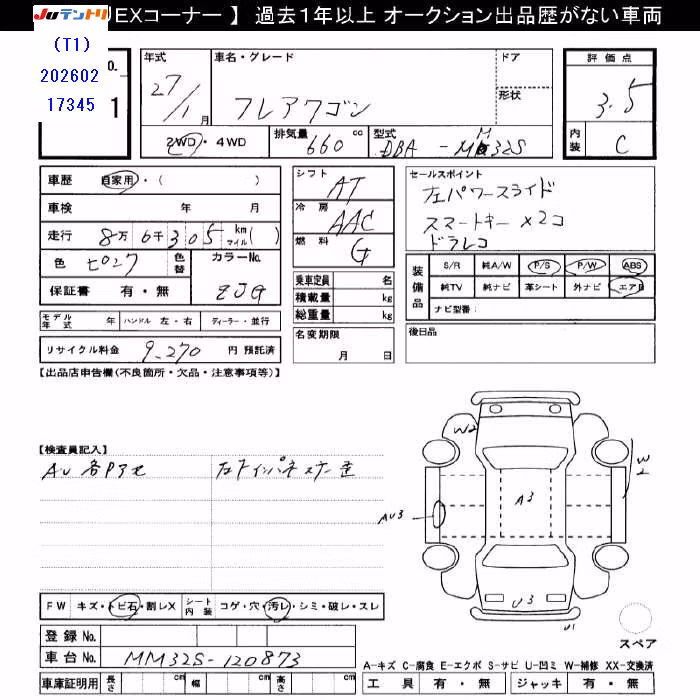 EXコーナー 】 過去１年以上 オークション出品歴がない車両
Juテントリ
(T1)
202602
17345
O.
1
年式
27/1月
車名・グレード
フレアワゴン
ドア
形状
評価点
3.5
内装
C
2WD・4WD
排気量
660 cc
型式
DBA-MM32S
車歴 自家用・( )
車検 年 月
走行 8万6千305 km マイル( )
色 ピンク
色替
カラーNo.
ZJG
保証書 有・無
シフト
AT
冷房
AAC
燃料
G
セールスポイント
左パワースライド
スマートキー×2コ
ドラレコ
装備品
S/R 純A/W P/S P/W ABS
純TV 純ナビ 革シート 外ナビ エアB
ナビ型番:
乗車定員 名
積載量 kg
総重量 kg
モデル年式 年 ハンドル 左・右 ディーラー・並行
名変期限
月 日
後日品
リサイクル料金 9,270 円 預託済
【出品店申告欄(不良箇所・欠品・注意事項等)】
【検査員記入】
AU 各Pアセ
W2
W2
A3
AU3
U3
U1
FW キズ・トビ石・割レX
シート内装 コゲ・穴・汚レ・シミ・破レ・スレ
登録 No.
車台 No. MM32S-120873
スペア
A-キズ C-腐食 E-エクボ S-サビ U-凹ミ W-補修 XX-交換済
車庫証明用 長さ cm 幅 cm 高さ cm
工具 有・無 ジャッキ 有・無